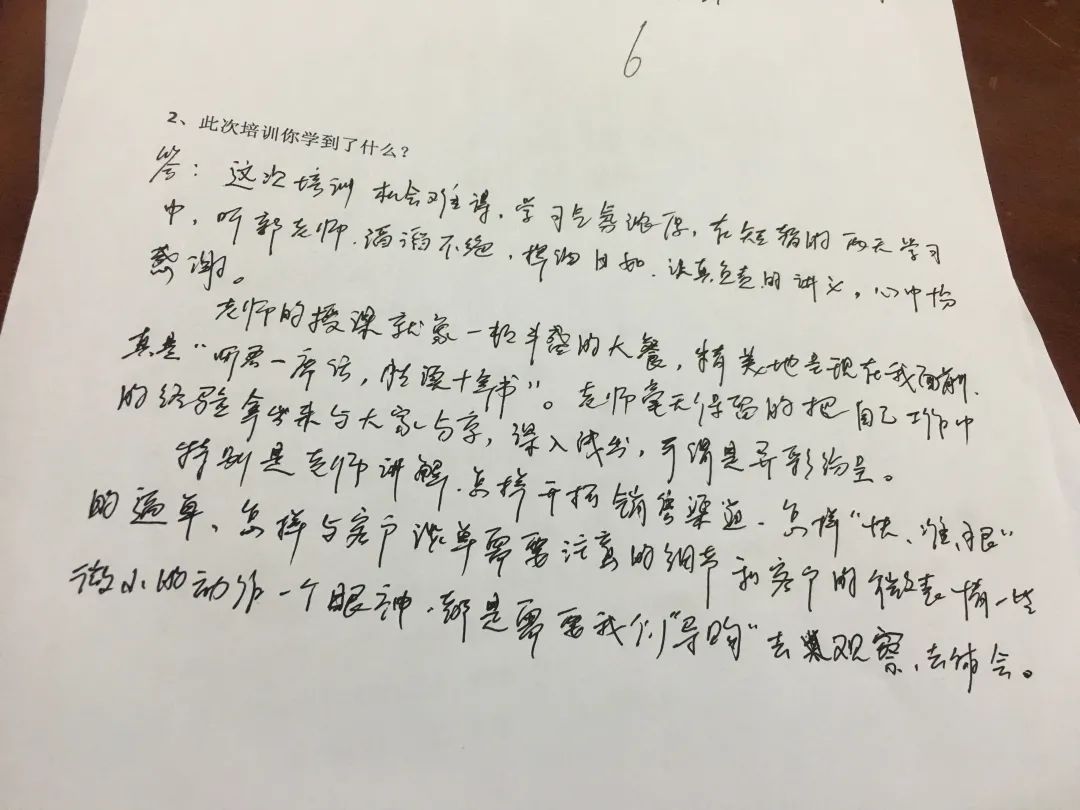 6
2、此次培训你学到了什么？
答：这次培训机会难得，学习气氛浓厚，在短暂的两天学习
中，听郭老师.滔滔不绝，挥洒自如.认真负责的讲义，心中十分
感谢。
老师的授课就象一桩丰盛的大餐，精美地呈现在我面前.
真是“听君一席话，胜读十年书”。老师毫无保留的把自己工作中
的经验拿出来与大家分享，深入浅出，可谓是异彩纷呈。
特别是老师讲解.怎样开拓销售渠道.怎样“快、准、狠”
的逼单、怎样与客户谈单需要注意的细节和客户的微表情一些
微小的动作一个眼神.都是需要我们“导购”去观察、去体会。